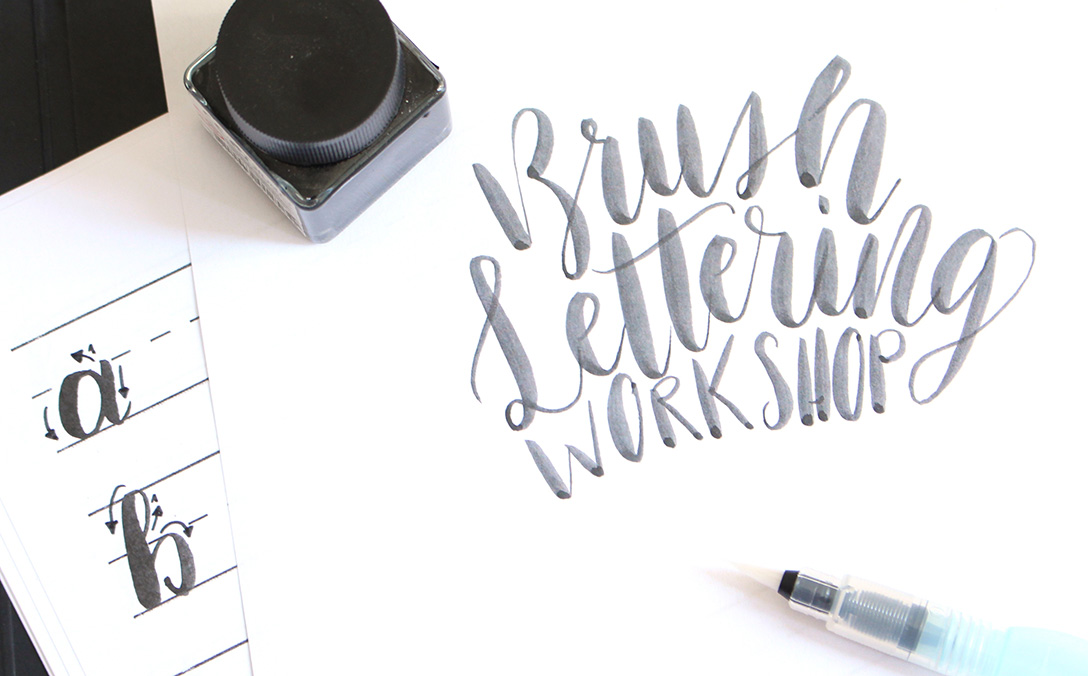 Brush
Lettering
WORKSHOP
a
b